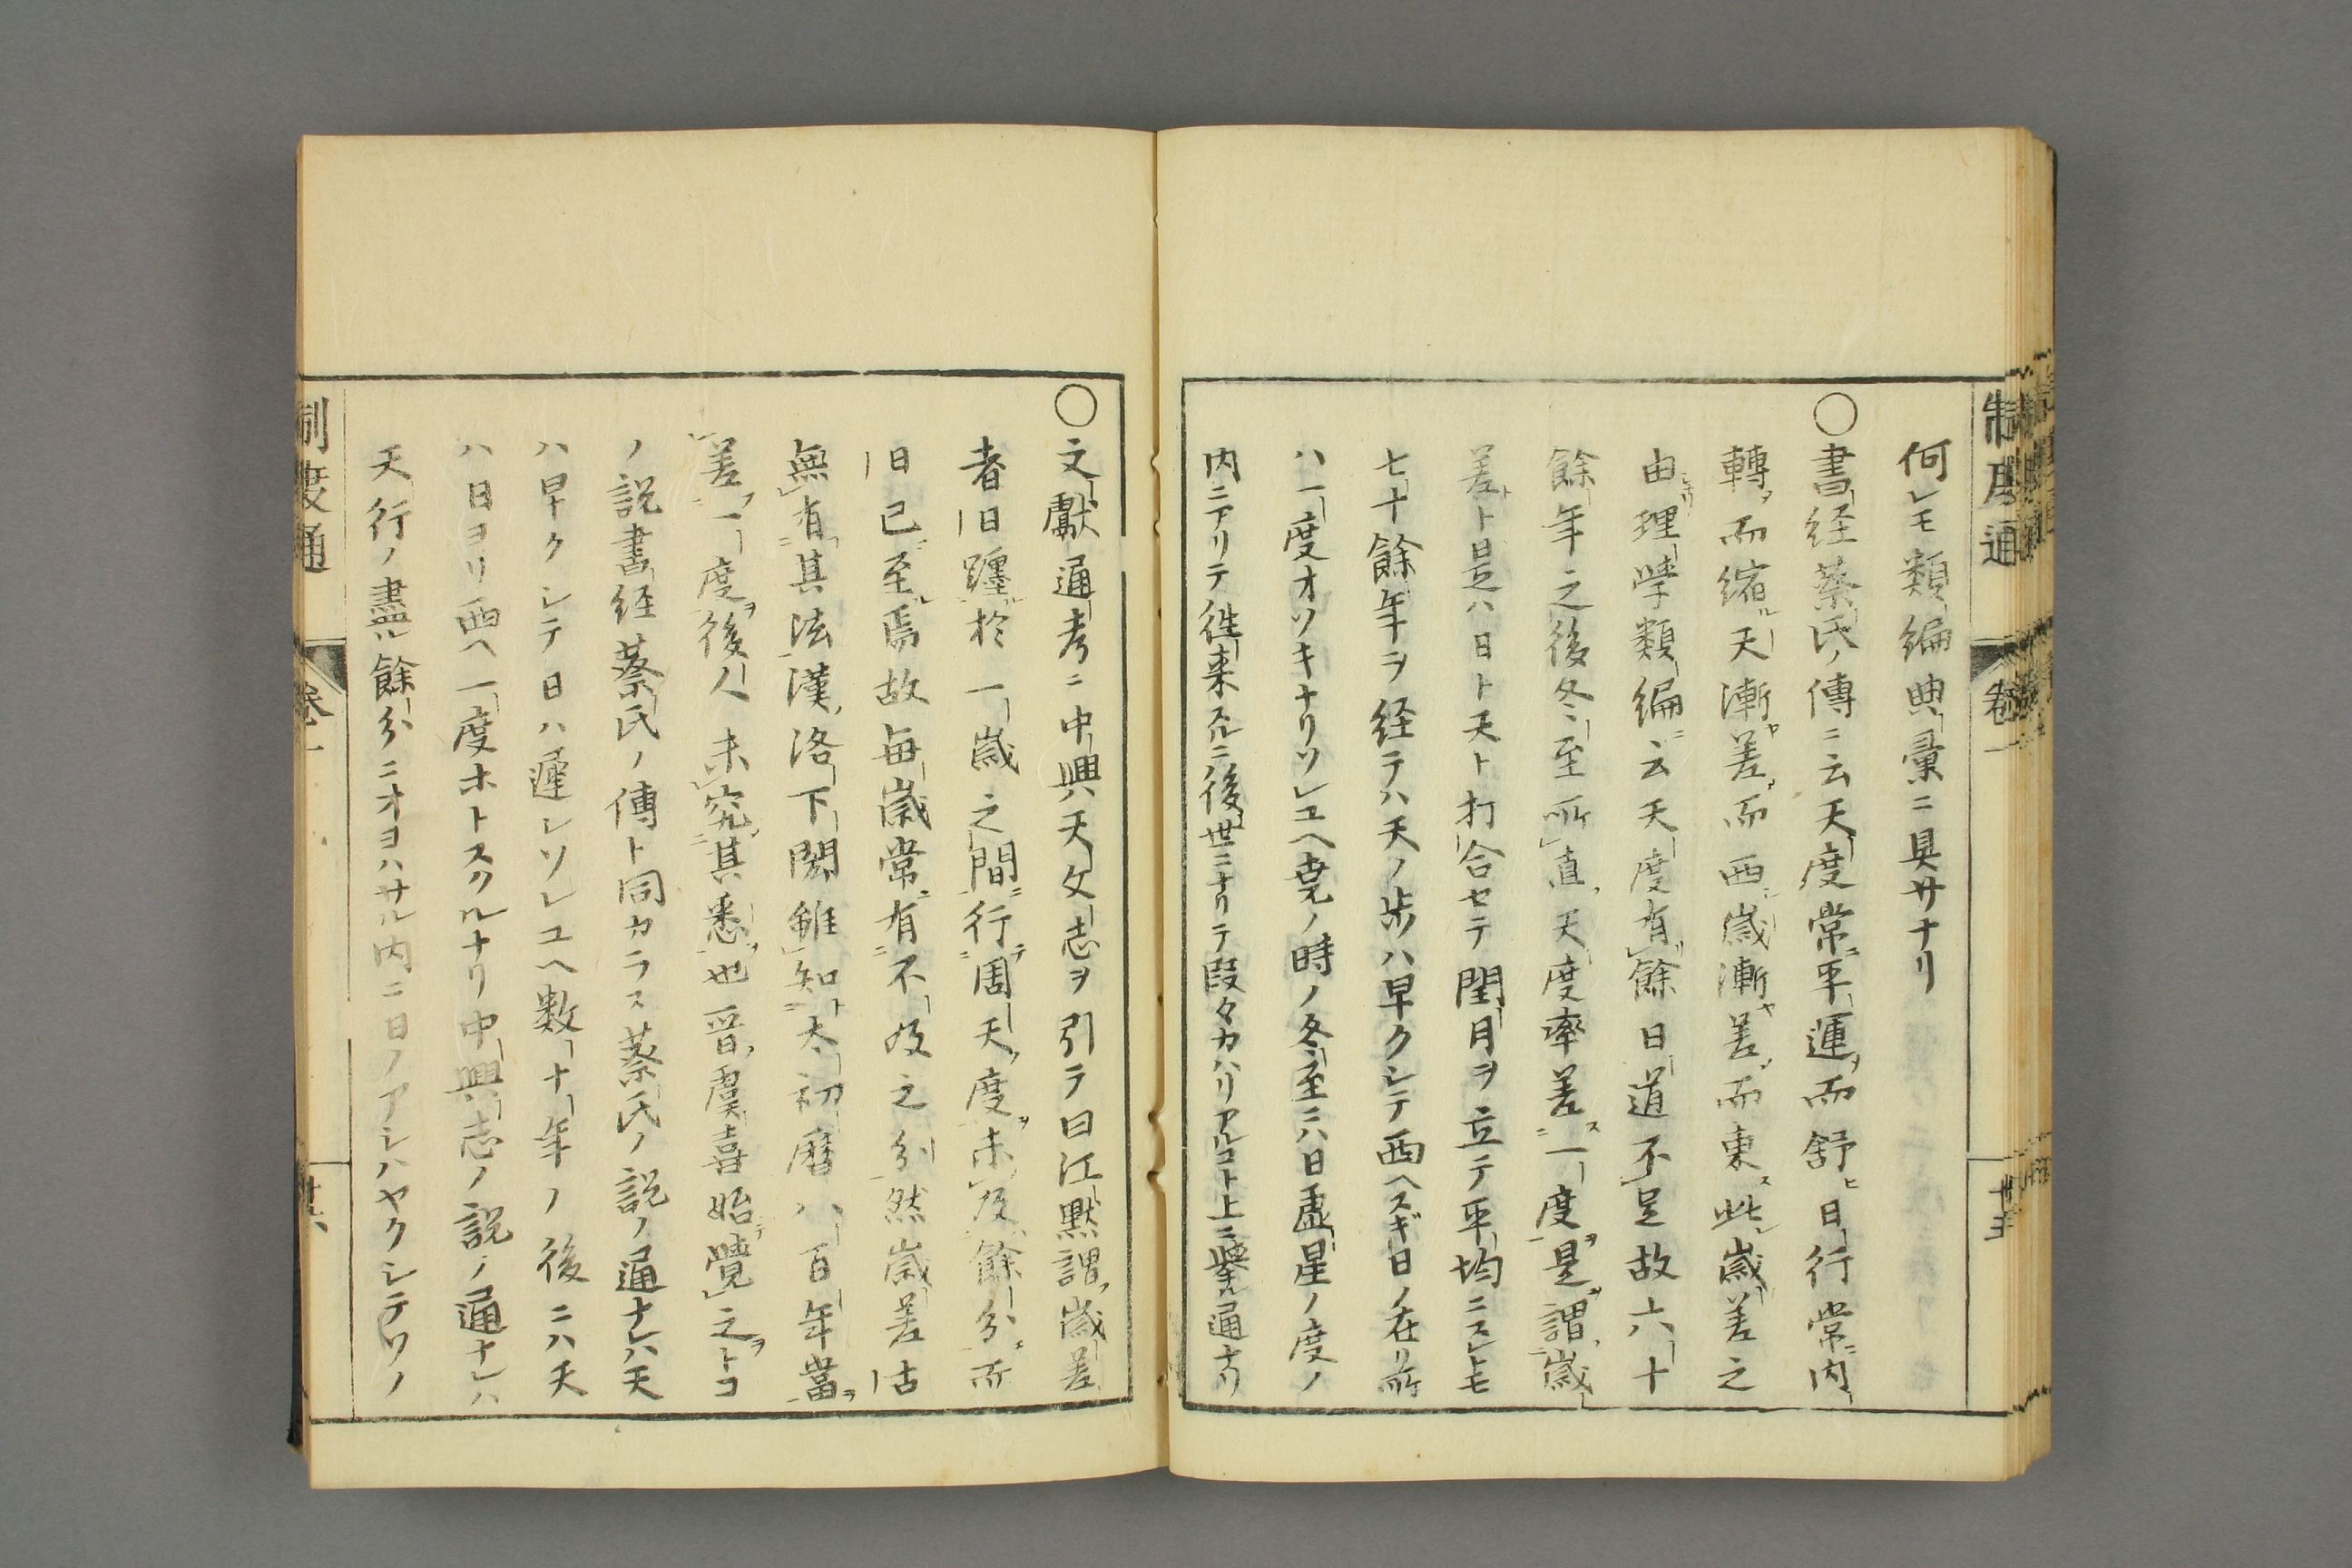 制度通
卷一
何レモ類編典彙ニ具サナリ
○書経蔡氏ノ傳ニ云天度常ニ平運ヲ而舒ヒ日行常ニ内
轉ヲ而縮ル天漸ヤ差ヲ而西ニ歳漸ヤ差ヲ而東ス此レ歳差之
由理學類編ニ云天度有餘日道不足故六十
餘年之後冬至所直天度率差ス一度ヲ是ヲ謂歳
差ト是ハ日ト天ト打合セテ閏月ヲ立テ平均ニスレトモ
七十餘年ヲ経テハ天ノ歩ハ早クシテ西ヘスギ日ノ在リ所
ハ一度オソキナリソレユヘ堯ノ時ノ冬至ニハ日虚星ノ度ノ
内ニアリテ徃来スルニ後世ニナリテ段々カハリアルコト上ニ擧ル通ナリ
○文獻通考ニ中興天文志ヲ引テ曰江默謂歳差
者日躔ル於一歳之間ニ行テ周天ノ度ヲ未及餘分ニ而
日已ニ至ル焉故毎歳常ニ有不及之分然歳差古
無有其法漢ノ洛下閎雖知ト太初暦八百年當ヲ
差フ一度ヲ後人未究其悉ヲ也晋ノ虞喜始テ覺之ヲトコ
ノ説書経蔡氏ノ傳ト同カラス蔡氏ノ説ノ通ナレハ天
ハ早クシテ日ハ遲シソレユヘ数十年ノ後ニハ天
ハ日ヨリ西ヘ一度ホトスクルナリ中興志ノ説ノ通ナレハ
天行ノ盡ル餘分ニオヨハサル内ニ日ノアシハヤクシテソノ
制度通
卷一
廿六